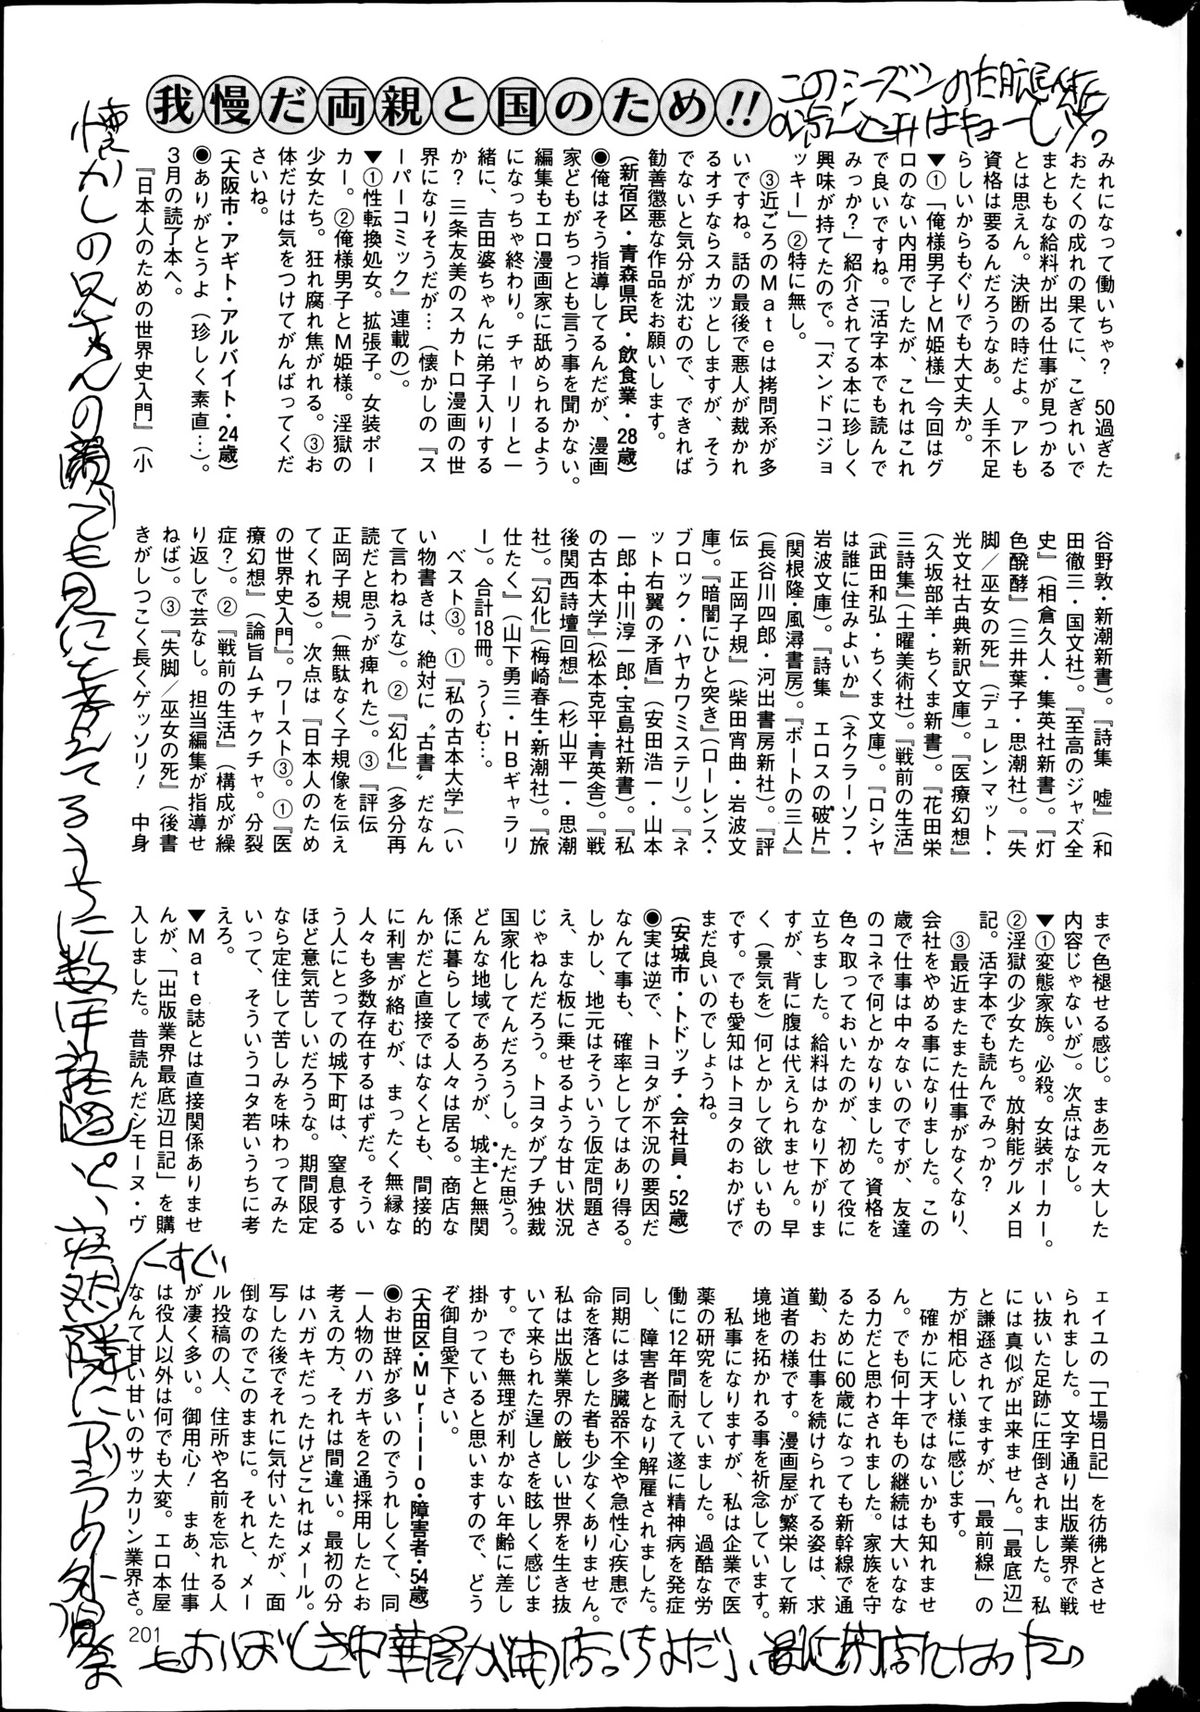 我慢だ両親と国のため!!
みれになって働いちゃ?　50過ぎた
おたくの成れの果てに、こぎれいで
まともな給料が出る仕事が見つかる
とは思えん。決断の時だよ。アレも
資格は要るんだろうなあ。人手不足
らしいからもぐりでも大丈夫か。
▼①「俺様男子とM姫様」今回はグ
ロのない内用でしたが、これはこれ
で良いですね。「活字本でも読んで
みっか?」紹介されてる本に珍しく
興味が持てたので。「ズンドコジョ
ッキー」②特に無し。
③近ごろのMateは拷問系が多
いですね。話の最後で悪人が裁かれ
るオチならスカッとしますが、そう
でないと気分が沈むので、できれば
勧善懲悪な作品をお願いします。
(新宿区・青森県民・飲食業・28歳)
◉俺はそう指導してるんだが、漫画
家どもがちっとも言う事を聞かない。
編集もエロ漫画家に舐められるよう
になっちゃ終わり。チャーリーと一
緒に、吉田婆ちゃんに弟子入りする
か?　三条友美のスカトロ漫画の世
界になりそうだが…(懐かしの『ス
ーパーコミック』連載の)。
▼①性転換処女。拡張子。女装ポー
カー。②俺様男子とM姫様。淫獄の
少女たち。狂れ腐れ焦がれる。③お
体だけは気をつけてがんばってくだ
さいね。
(大阪市・アギト・アルバイト・24歳)
◉ありがとうよ(珍しく素直…)。
3月の読了本へ。
『日本人のための世界史入門』(小
谷野敦・新潮新書)。『詩集　嘘』(和
田徹三・国文社)。『至高のジャズ全
史』(相倉久人・集英社新書)。『灯
色醗酵』(三井葉子・思潮社)。『失
脚/巫女の死』(デュレンマット・
光文社古典新訳文庫)。『医療幻想』
(久坂部羊・ちくま新書)。『花田栄
三詩集』(土曜美術社)。『戦前の生活』
(武田和弘・ちくま文庫)。『ロシヤ
は誰に住みよいか』(ネクラーソフ・
岩波文庫)。『詩集　エロスの破片』
(関根隆・風濤書房)。『ボートの三人』
(長谷川四郎・河出書房新社)。『評
伝　正岡子規』(柴田宵曲・岩波文
庫)。『暗闇にひと突き』(ローレンス・
ブロック・ハヤカワミステリ)。『ネ
ット右翼の矛盾』(安田浩一・山本
一郎・中川淳一郎・宝島社新書)。『私
の古本大学』(松本克平・青英舎)。『戦
後関西詩壇回想』(杉山平一・思潮
社)。『幻化』(梅崎春生・新潮社)。『旅
仕たく』(山下勇三・HBギャラリ
ー)。合計18冊。う～む…。
ベスト③。①『私の古本大学』(い
い物書きは、絶対に〝古書〟だなん
て言わねえな)。②『幻化』(多分再
読だと思うが痺れた)。③『評伝
正岡子規』(無駄なく子規像を伝え
てくれる)。次点は『日本人のため
の世界史入門』。ワースト③。①『医
療幻想』(論旨ムチャクチャ。分裂
症?)。②『戦前の生活』(構成が繰
り返しで芸なし。担当編集が指導せ
ねば)。③『失脚/巫女の死』(後書
きがしつこく長くゲッソリ!　中身
まで色褪せる感じ。まあ元々大した
内容じゃないが)。次点はなし。
▼①変態家族。必殺。女装ポーカー。
②淫獄の少女たち。放射能グルメ日
記。活字本でも読んでみっか?
③最近またまた仕事がなくなり、
会社をやめる事になりました。この
歳で仕事は中々ないのですが、友達
のコネで何とかなりました。資格を
色々取っておいたのが、初めて役に
立ちました。給料はかなり下がりま
すが、背に腹は代えられません。早
く(景気を)何とかして欲しいもの
です。でも愛知はトヨタのおかげで
まだ良いのでしょうね。
(安城市・トドッチ・会社員・52歳)
◉実は逆で、トヨタが不況の要因だ
なんて事も、確率としてはあり得る。
しかし、地元はそういう仮定問題さ
え、まな板に乗せるような甘い状況
じゃねんだろう。トヨタがプチ独裁
国家化してんだろうし。ただ思う。
どんな地域であろうが、城主と無関
係に暮らしてる人々は居る。商店な
んかだと直接ではなくとも、間接的
に利害が絡むが、まったく無縁な
人々も多数存在するはずだ。そうい
う人にとっての城下町は、窒息する
ほど意気苦しいだろうな。期間限定
なら定住して苦しみを味わってみた
いって、そういうコタ若いうちに考
えろ。
▼Mate誌とは直接関係ありませ
んが、「出版業界最底辺日記」を購
入しました。昔読んだシモーヌ・ヴ
ェイユの「工場日記」を彷彿とさせ
られました。文字通り出版業界で戦
い抜いた足跡に圧倒されました。私
には真似が出来ません。「最底辺」
と謙遜されてますが、「最前線」の
方が相応しい様に感じます。
確かに天才ではないかも知れませ
ん。でも何十年もの継続は大いなな
る力だと思わされました。家族を守
るために60歳になっても新幹線で通
勤、お仕事を続けられてる姿は、求
道者の様です。漫画屋が繁栄して新
境地を拓かれる事を祈念しています。
私事になりますが、私は企業で医
薬の研究をしていました。過酷な労
働に12年間耐えて遂に精神病を発症
し、障害者となり解雇されました。
同期には多臓器不全や急性心疾患で
命を落とした者も少なくありません。
私は出版業界の厳しい世界を生き抜
いて来られた逞しさを眩しく感じま
す。でも無理が利かない年齢に差し
掛かっていると思いますので、どう
ぞ御自愛下さい。
(大田区・Murillo・障害者・54歳)
◉お世辞が多いのでうれしくて、同
一人物のハガキを2通採用したとお
考えの方、それは間違い。最初の分
はハガキだったけどこれはメール。
写した後でそれに気付いたたが、面
倒なのでこのままに。それと、メー
ル投稿の人、住所や名前を忘れる人
が凄く多い。御用心!　まあ、仕事
は役人以外は何でも大変。エロ本屋
なんて甘い甘いのサッカリン業界さ。
201